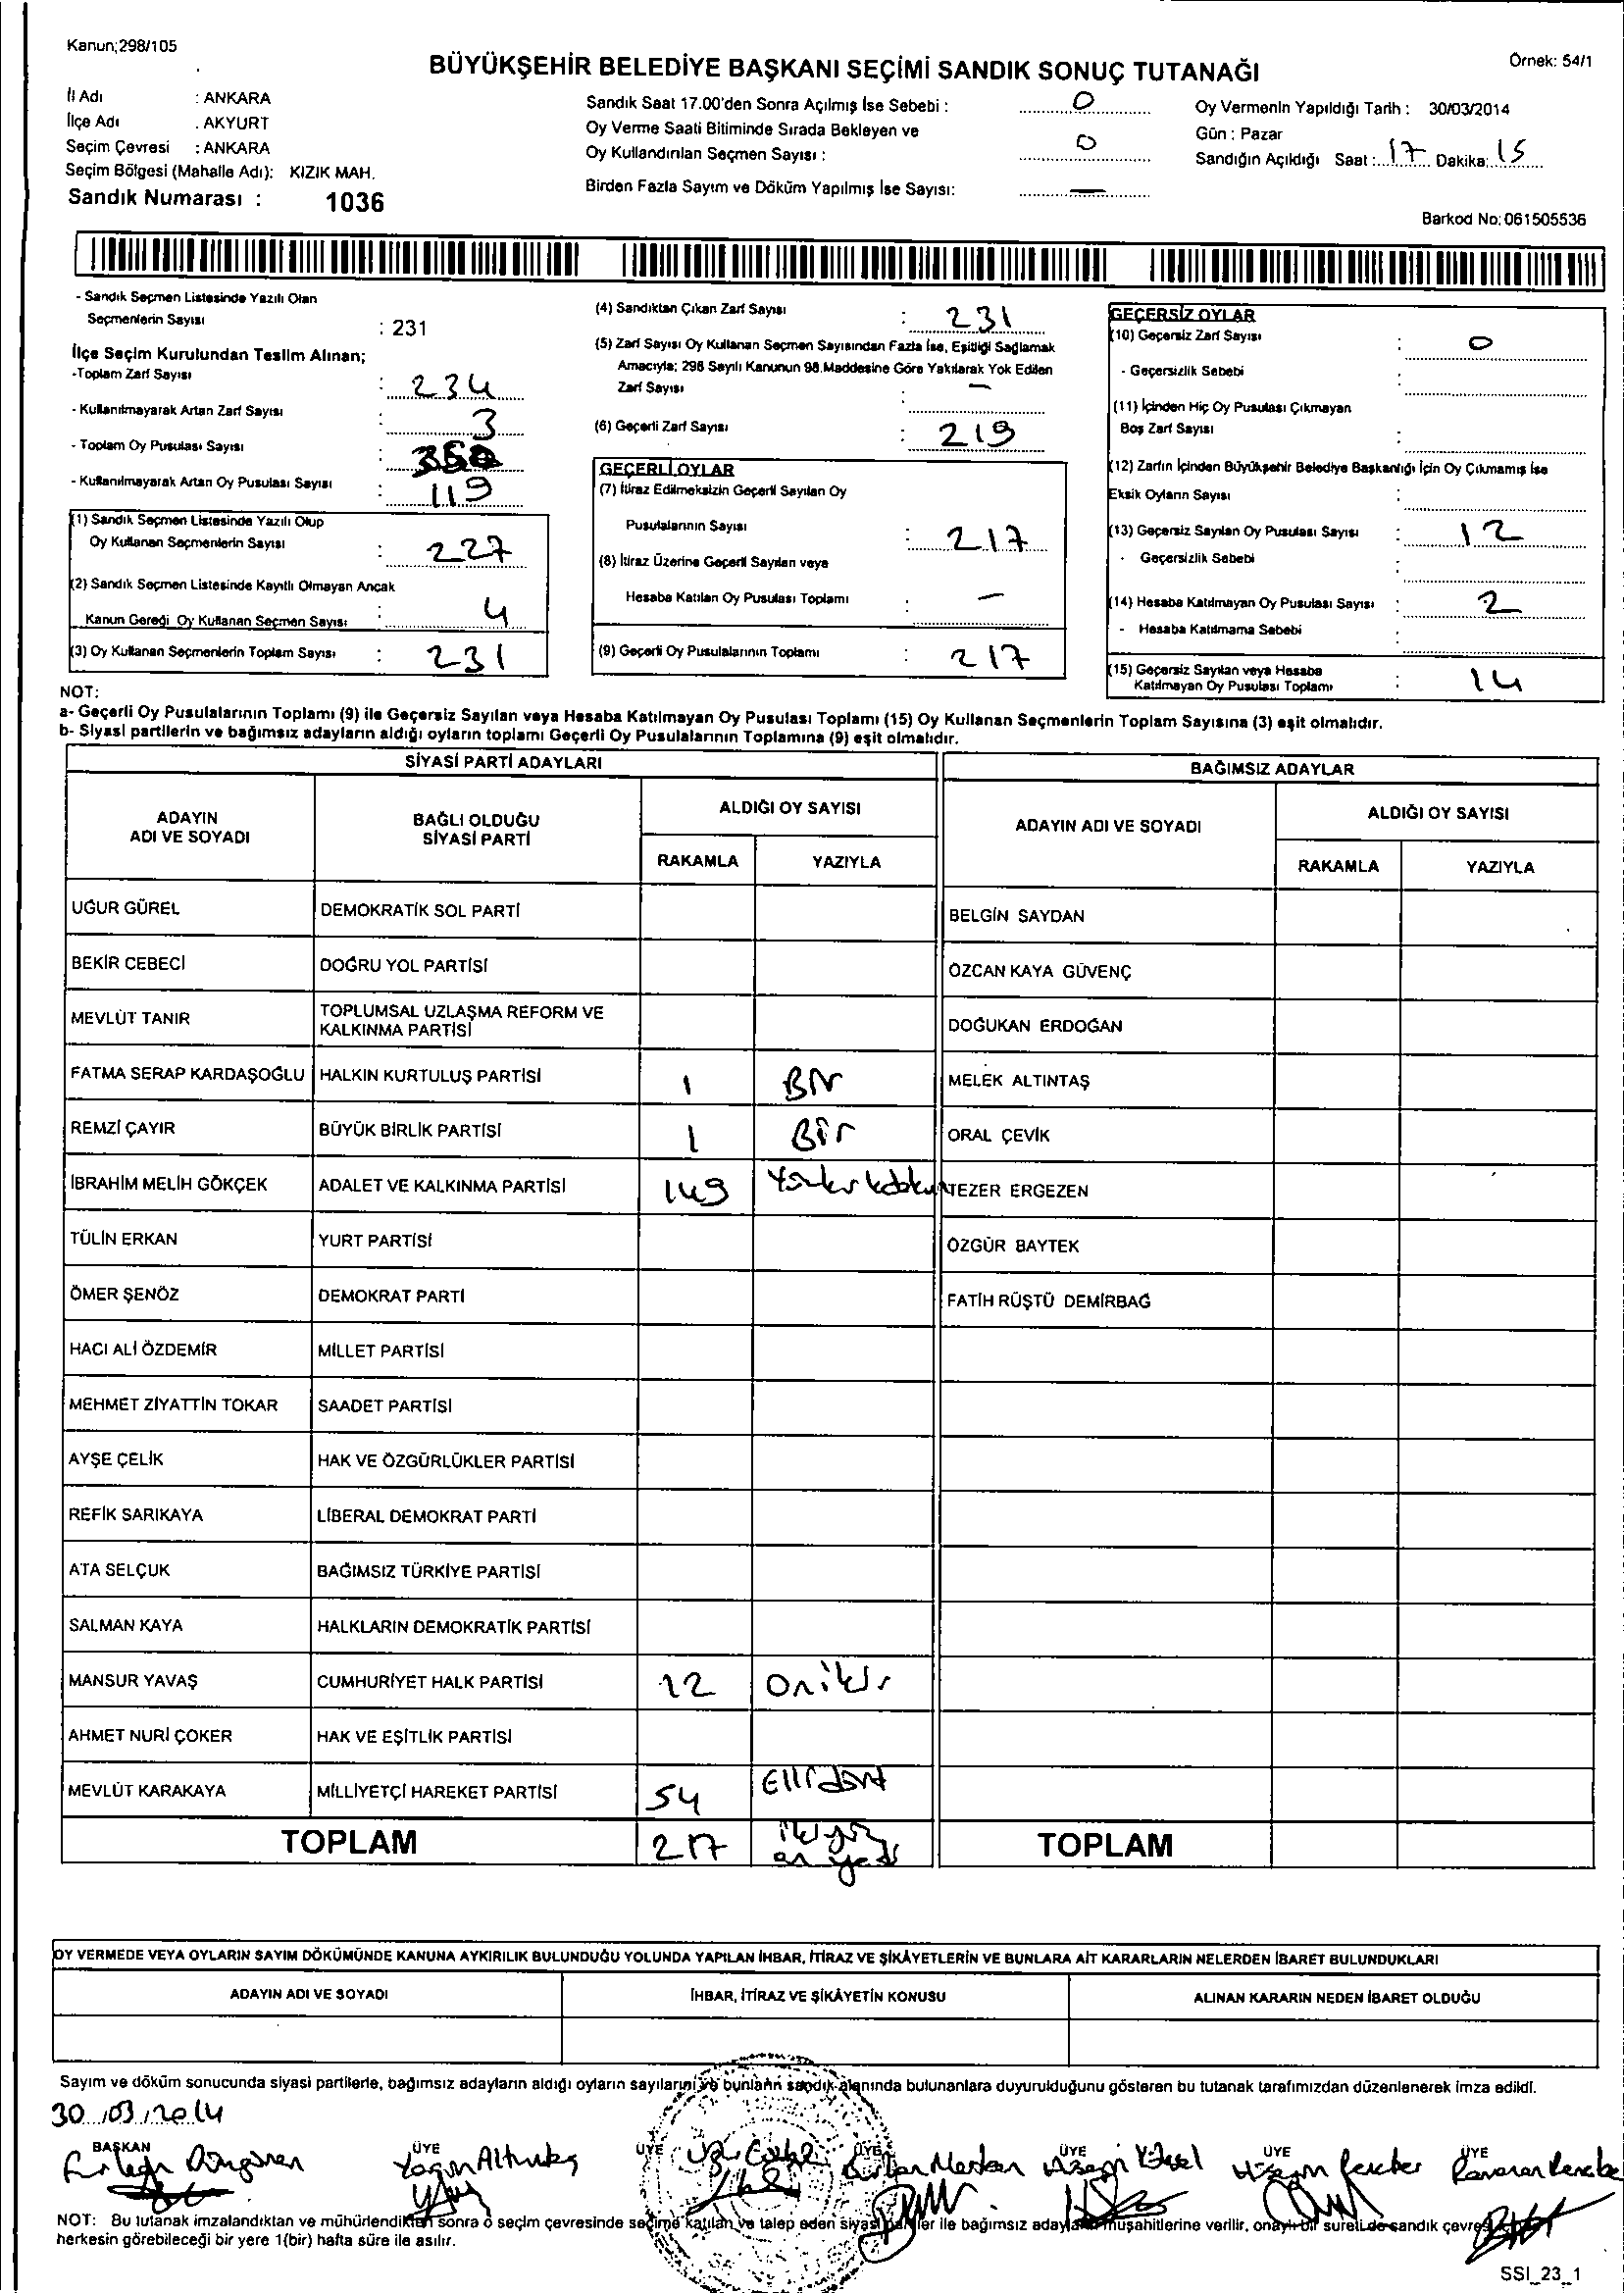 Kanun;298/105
BÜYÜKŞEHİR BELEDİYE BAŞKANI SEÇİMİ SANDIK SONUÇ TUTANAĞI
Örnek: 54/1
İl Adı : ANKARA
İlçe Adı . AKYURT
Seçim Çevresi : ANKARA
Seçim Bölgesi (Mahalle Adı): KIZIK MAH.
Sandık Numarası : 1036
Sandık Saat 17.00'den Sonra Açılmış İse Sebebi : 0
Oy Verme Saati Bitiminde Sırada Bekleyen ve
Oy Kullandırılan Seçmen Sayısı : 0
Birden Fazla Sayım ve Döküm Yapılmış İse Sayısı: —
Oy Vermenin Yapıldığı Tarih : 30/03/2014
Gün : Pazar
Sandığın Açıldığı Saat : 17 Dakika: 15
Barkod No: 061505536
- Sandık Seçmen Listesinde Yazılı Olan
Seçmenlerin Sayısı : 231
İlçe Seçim Kurulundan Teslim Alınan;
-Toplam Zarf Sayısı : 234
- Kullanılmayarak Artan Zarf Sayısı : 3
- Toplam Oy Pusulası Sayısı : 350
- Kullanılmayarak Artan Oy Pusulası Sayısı : 119
(1) Sandık Seçmen Listesinde Yazılı Olup
Oy Kullanan Seçmenlerin Sayısı : 227
(2) Sandık Seçmen Listesinde Kayıtlı Olmayan Ancak
Kanun Gereği Oy Kullanan Seçmen Sayısı : 4
(3) Oy Kullanan Seçmenlerin Toplam Sayısı : 231
(4) Sandıktan Çıkan Zarf Sayısı : 231
(5) Zarf Sayısı Oy Kullanan Seçmen Sayısından Fazla İse, Eşitliği Sağlamak
Amacıyla; 298 Sayılı Kanunun 98.Maddesine Göre Yakılarak Yok Edilen
Zarf Sayısı : —
(6) Geçerli Zarf Sayısı : 219
GEÇERLİ OYLAR
(7) İtiraz Edilmeksizin Geçerli Sayılan Oy
Pusulalarının Sayısı : 217
(8) İtiraz Üzerine Geçerli Sayılan veya
Hesaba Katılan Oy Pusulası Toplamı : —
(9) Geçerli Oy Pusulalarının Toplamı : 217
GEÇERSİZ OYLAR
(10) Geçersiz Zarf Sayısı : 0
- Geçersizlik Sebebi :
(11) İçinden Hiç Oy Pusulası Çıkmayan
Boş Zarf Sayısı :
(12) Zarfın İçinden Büyükşehir Belediye Başkanlığı İçin Oy Çıkmamış İse
Eksik Oyların Sayısı :
(13) Geçersiz Sayılan Oy Pusulası Sayısı : 12
- Geçersizlik Sebebi :
(14) Hesaba Katılmayan Oy Pusulası Sayısı : 2
- Hesaba Katılmama Sebebi :
(15) Geçersiz Sayılan veya Hesaba
Katılmayan Oy Pusulası Toplamı : 14
NOT:
a- Geçerli Oy Pusulalarının Toplamı (9) ile Geçersiz Sayılan veya Hesaba Katılmayan Oy Pusulası Toplamı (15) Oy Kullanan Seçmenlerin Toplam Sayısına (3) eşit olmalıdır.
b- Siyasi partilerin ve bağımsız adayların aldığı oyların toplamı Geçerli Oy Pusulalarının Toplamına (9) eşit olmalıdır.
SİYASİ PARTİ ADAYLARI
ADAYIN ADI VE SOYADI BAĞLI OLDUĞU SİYASİ PARTİ ALDIĞI OY SAYISI
RAKAMLA YAZIYLA
UĞUR GÜREL DEMOKRATİK SOL PARTİ
BEKİR CEBECİ DOĞRU YOL PARTİSİ
MEVLÜT TANIR TOPLUMSAL UZLAŞMA REFORM VE KALKINMA PARTİSİ
FATMA SERAP KARDAŞOĞLU HALKIN KURTULUŞ PARTİSİ 1 Bir
REMZİ ÇAYIR BÜYÜK BİRLİK PARTİSİ 1 Bir
İBRAHİM MELİH GÖKÇEK ADALET VE KALKINMA PARTİSİ 149
TÜLİN ERKAN YURT PARTİSİ
ÖMER ŞENÖZ DEMOKRAT PARTİ
HACI ALİ ÖZDEMİR MİLLET PARTİSİ
MEHMET ZİYATTİN TOKAR SAADET PARTİSİ
AYŞE ÇELİK HAK VE ÖZGÜRLÜKLER PARTİSİ
REFİK SARIKAYA LİBERAL DEMOKRAT PARTİ
ATA SELÇUK BAĞIMSIZ TÜRKİYE PARTİSİ
SALMAN KAYA HALKLARIN DEMOKRATİK PARTİSİ
MANSUR YAVAŞ CUMHURİYET HALK PARTİSİ 12 Oniki
AHMET NURİ ÇOKER HAK VE EŞİTLİK PARTİSİ
MEVLÜT KARAKAYA MİLLİYETÇİ HAREKET PARTİSİ 54 Ellidört
TOPLAM 217 ikiyüz
on yedi
BAĞIMSIZ ADAYLAR
ADAYIN ADI VE SOYADI ALDIĞI OY SAYISI
RAKAMLA YAZIYLA
BELGİN SAYDAN
ÖZCAN KAYA GÜVENÇ
DOĞUKAN ERDOĞAN
MELEK ALTINTAŞ
ORAL ÇEVİK
TEZER ERGEZEN
ÖZGÜR BAYTEK
FATİH RÜŞTÜ DEMİRBAĞ
TOPLAM
OY VERMEDE VEYA OYLARIN SAYIM DÖKÜMÜNDE KANUNA AYKIRILIK BULUNDUĞU YOLUNDA YAPILAN İHBAR, İTİRAZ VE ŞİKÂYETLERİN VE BUNLARA AİT KARARLARIN NELERDEN İBARET BULUNDUKLARI
ADAYIN ADI VE SOYADI İHBAR, İTİRAZ VE ŞİKÂYETİN KONUSU ALINAN KARARIN NEDEN İBARET OLDUĞU
Sayım ve döküm sonucunda siyasi partilerle, bağımsız adayların aldığı oyların sayılarını ve bunların sandık alanında bulunanlara duyurulduğunu gösteren bu tutanak tarafımızdan düzenlenerek imza edildi.
30/03/2014
BAŞKAN ÜYE ÜYE ÜYE ÜYE ÜYE ÜYE
NOT: Bu tutanak imzalandıktan ve mühürlendikten sonra o seçim çevresinde seçime katılan ve talep eden siyasi partiler ile bağımsız adayların müşahitlerine verilir, onaylı bir sureti de sandık
herkesin görebileceği bir yere 1(bir) hafta süre ile asılır.
SSI_23_1